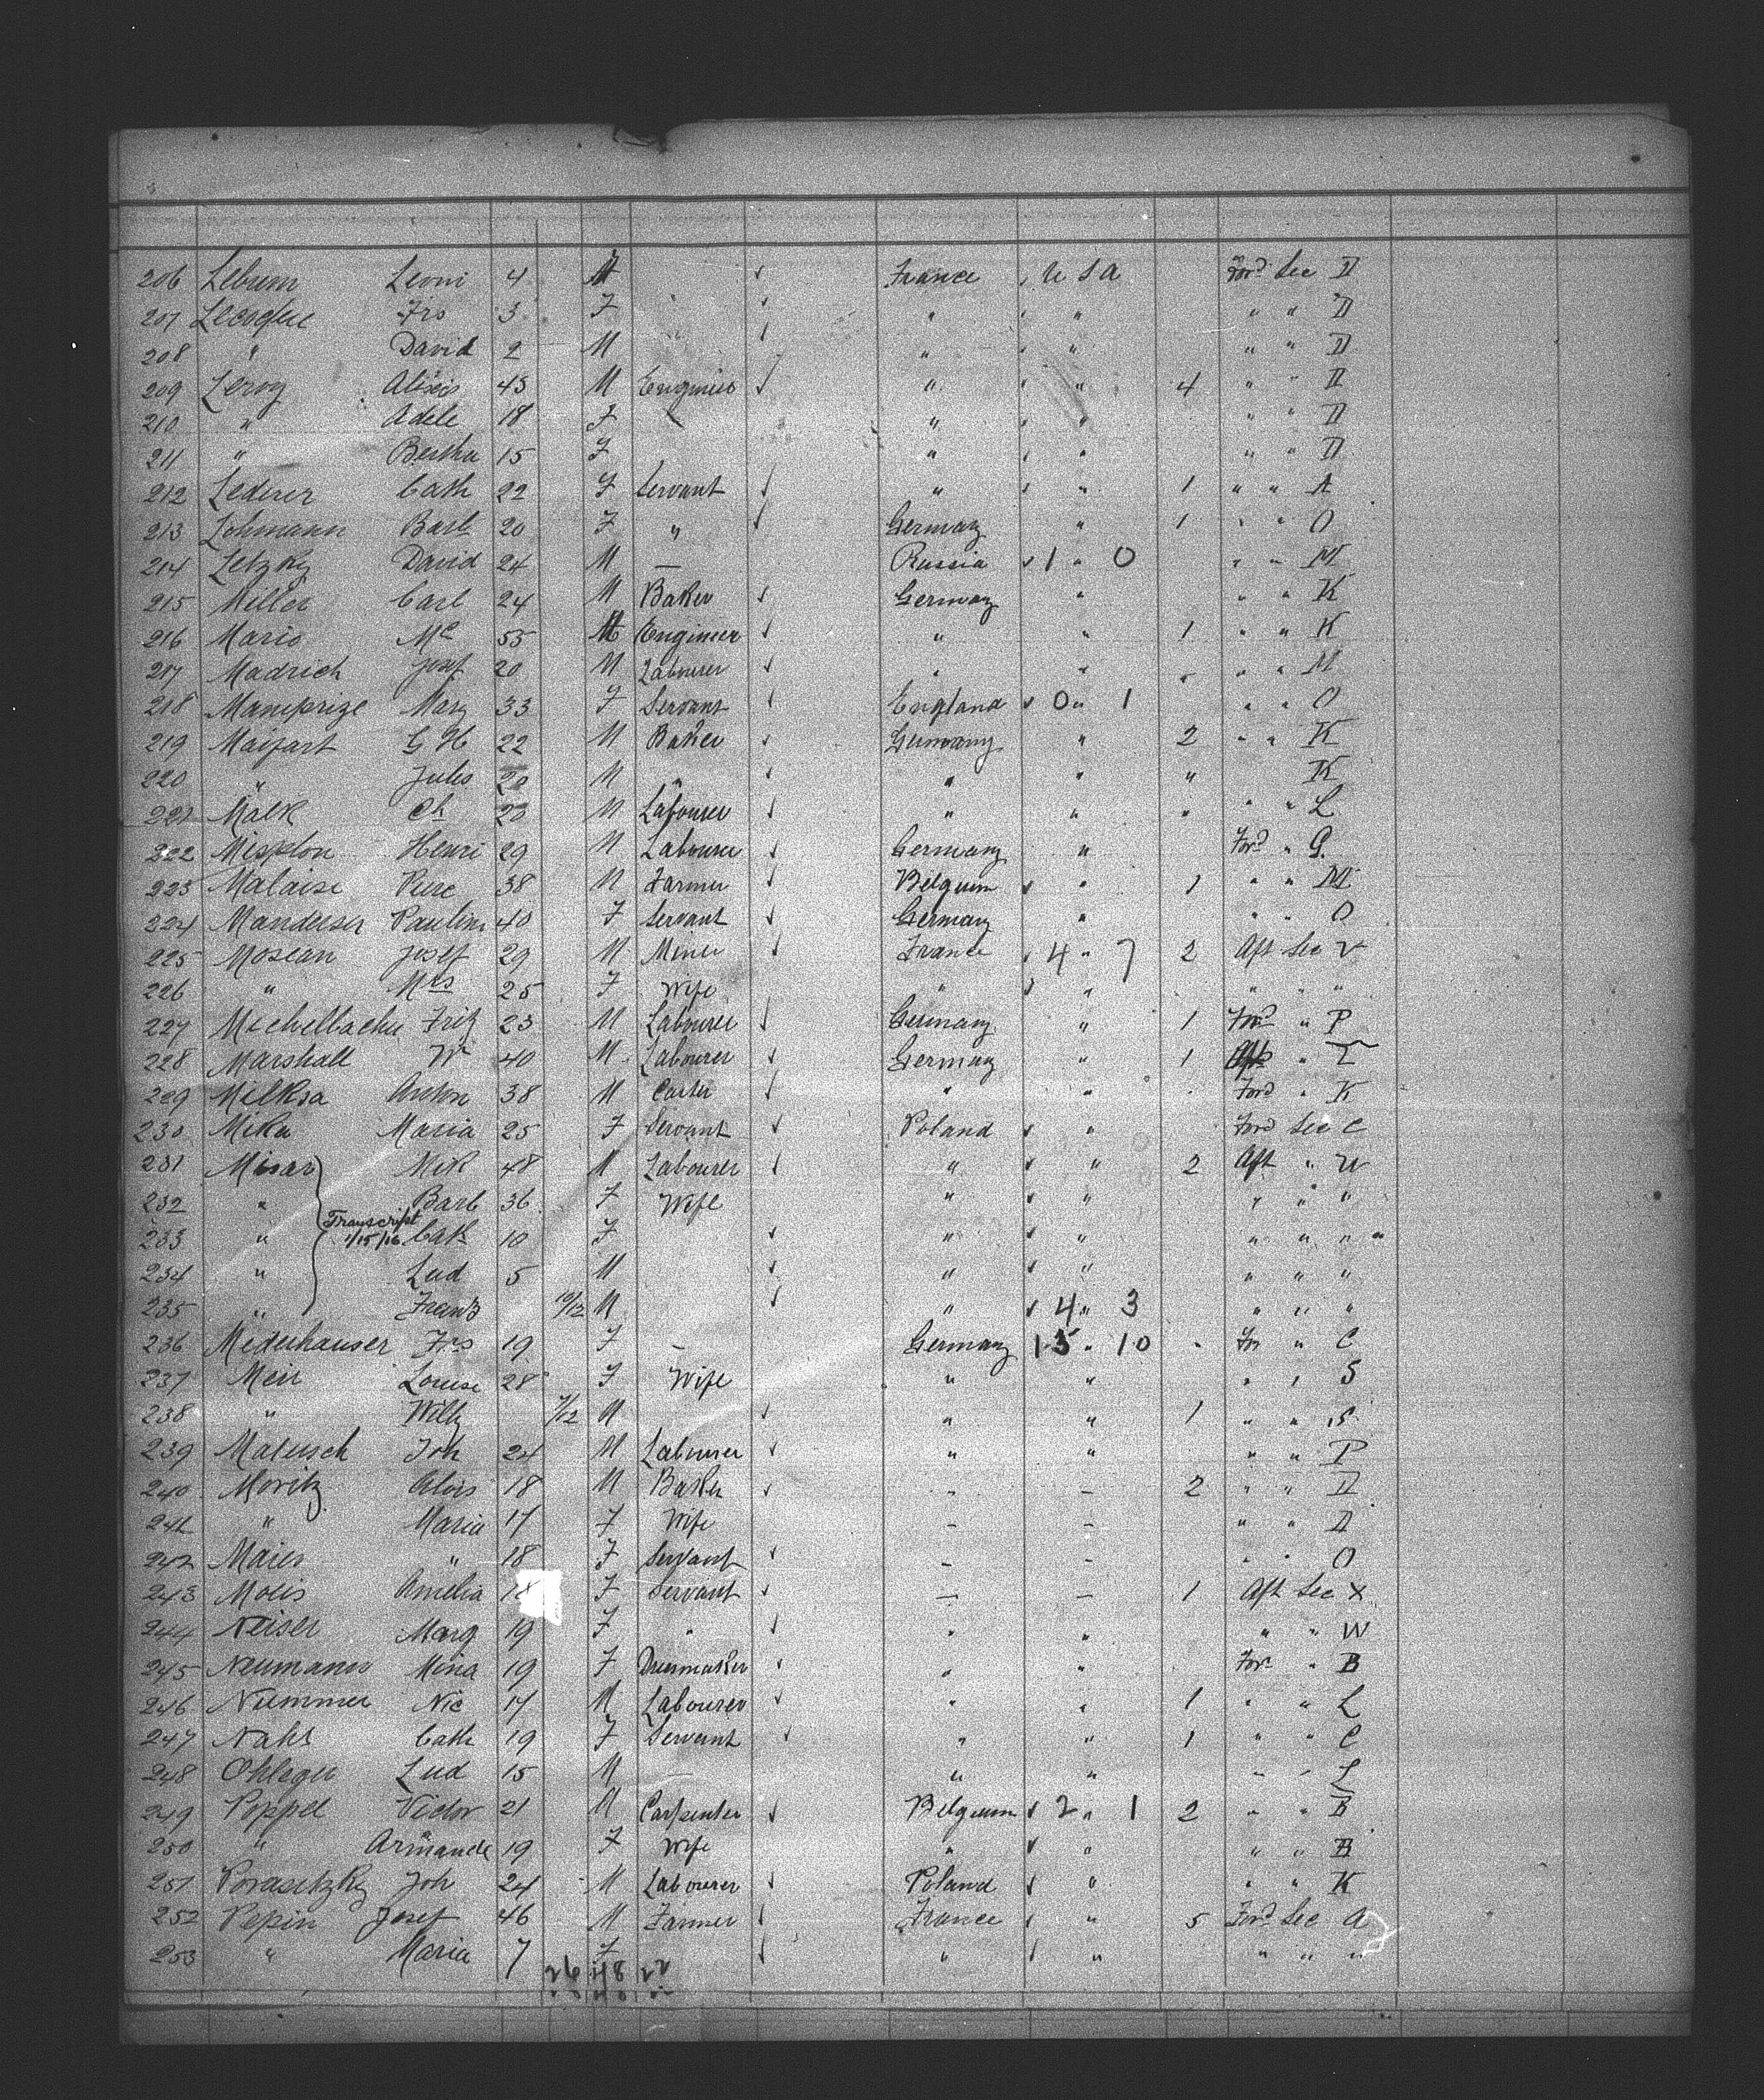 206 Lebrun Leoni 4 M France U S A Ford Sec D
207 Frs 3 F " " " " D
208 " David 2 M " " " " D
209 Leroy Alixis 45 M " " 4 " " D
210 " Adele 18 F " " " " D
211 " Bertha 15 F " " " " D
212 Lederer Cath 22 F Servant " " 1 " " A
213 Lohmann Barb 20 F " Germany " 1 " " O
214 Letzky David 24 M — Russia 1 " 0 " " M
215 Miller Carl 24 M Baker Germany " " " K
216 Mario Mc 55 M Engineer " " 1 " " K
217 Madrich Josef 20 M Labourer " " " " M
218 Mamprize Mary 33 F Servant England 0 " 1 " " O
219 Maifart G H 22 M Baker Germany " 2 " " K
220 " Jules 20 M " " " " K
221 Malk Ch 20 M Labourer " " " " " L
222 Misplon Henri 29 M Labourer Germany " Ford " G.
223 Malaise Piere 38 M Farmer Belgium " 1 " " M
224 Manderser Paulin 40 F Servant Germany " " " O
225 Mosean Josef 29 M Miner France 4 " 7 2 Aft Sec V
226 " Mrs 25 F Wife " " " " "
227 Michelbacher Fritz 23 M Labourer Germany " 1 Ford " P
228 Marshall Wm 40 M Labourer Germany " 1 Aft " T
229 Milksa Anton 38 M Carter " " Ford " K
230 Mika Maria 25 F Servant Poland " Ford Sec C
231 Misar Mik 48 M Labourer " " 2 Aft " U
232 " Barb 36 F Wife " " " " "
Transcript
233 " 1/15/16 Cath 10 F " " " " " "
234 " Lud 5 M " " " " "
235 " Franz 10/12 M " 4 " 3 " " "
236 Mederhauser Frs 19 F — Germany 15 " 10 " " C
237 Meir Louise 28 F Wife " " " " S
238 " Willy 7/12 M " " 1 " " S
239 Matusch Joh 24 M Labourer " " " " P
240 Moritz Alois 18 M Baker " — 2 " " D
241 " Maria 17 F Wife — — " " D
242 Maier " 18 F Servant — " " O
243 Motis Amelia 18 F Servant — — 1 Aft Sec X
244 Neiser Marg 19 F " " " " " W
245 Neumann Mina 19 F Dressmaker " " For " B
246 Nummer Nic 17 M Labourer " " 1 " " L
247 Nahs Cath 19 F Servant " " 1 " " C
248 Ohleger Lud 15 M — " " " " L
249 Poppel Victor 21 M Carpenter Belgium 2 " 1 2 " " B
250 " Armande 19 F Wife " " " " B
251 Porasitzky Joh 24 M Labourer Poland " " " K
252 Pepin Josef 46 M Farmer France " 5 Ford Sec A
253 " Maria 7 F " " " " "
26 48 22